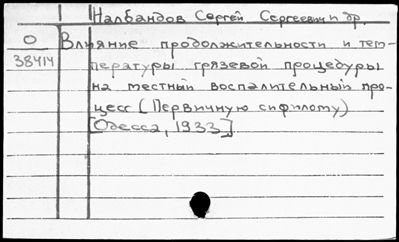 Налбандов Сергей Сергеевич и др.
О
38414
Влияние продолжительности и тем-
пературы грязевой процедуры
на местный воспалительный про-
цесс (Первичную сифилому)
[Одесса, 1933]